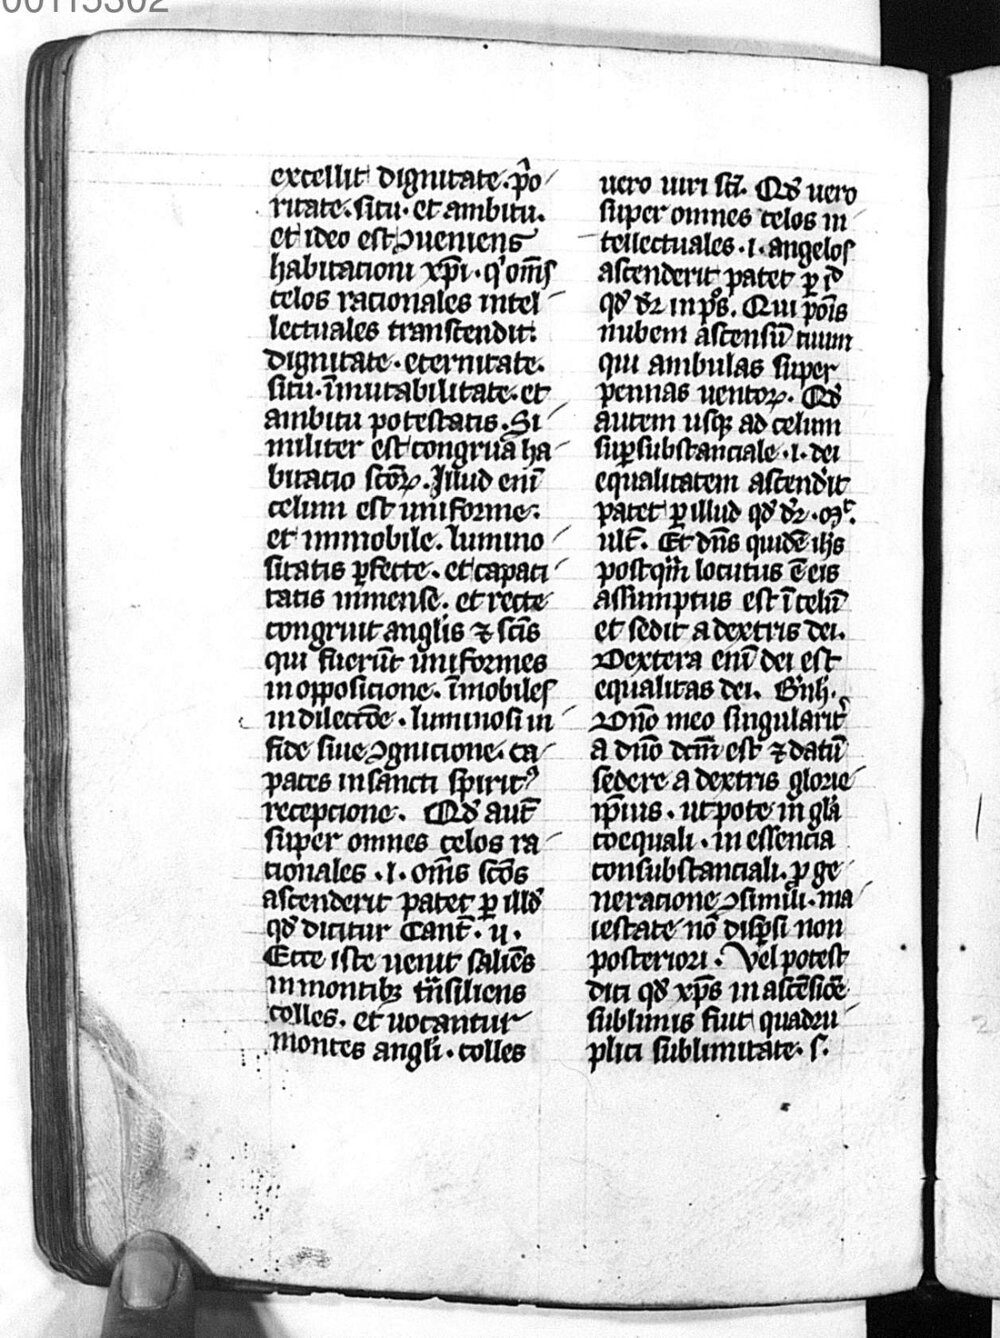 00115302
excellit dignitate. p̄o
ritate. situ. et ambitu.
et ideo est ꝯueniens
habitationi xp̄i. q' om̄s
celos racionales intel
lectuales transcendit.
dignitate. eternitate.
situ. īmutabilitate. et
ambitu potestatis. Si
militer est congrua ha
bitacio sc̄oꝝ. Illud eni̅
celum est uniforme.
et immobile. lumino
sitatis ꝑfecte. et capaci
tatis inmense. et recte
congruit angl̄is ⁊ sc̄is
qui fuerūt uniformes
in oppositione. īmobiles
in dilectōe. luminosi in
fide siue ꝯgnicione. ca
paces in sancti spiritꝰ
recepcione. Qd̄ aut̄
super omnes celos ra
cionales .i. om̄s sc̄os
ascenderit patet ꝑ illd̄
qd̄ dicitur Cant̄. ij.
Ecce iste uenit saliēs
in montibꝫ tn̄siliens
colles. et uocantur
montes angl̄i. colles
uero uiri sc̄i. Qd̄ uero
super omnes celos in
tellectuales .i. angelos
ascenderit patet ꝑ id
qd̄ dr̄ in ps̄. Qui pōis
nubem ascensū tuum
qui ambulas super
pennas uentoꝝ. Qd̄
autem usqꝫ ad celum
suꝑsubstanciale .i. dei
equalitatem ascendit
patet ꝑ illud qd̄ dr̄. Mͬ.
ult̄. Et dn̄s quidē ih̄s
postqm̄ locutus ē eis
assumptus est ī celū
et sedit a dextris dei.
Dextera eni̅ dei est
equalitas dei. B'nh̄.
Dn̄o meo singularit̉
a dn̄o dc̄m est ⁊ datū
sedere a dextris glorie
ip̄ius. utpote in gl̄a
coequali. in essencia
consubstanciali. ꝑ ge
neracione ꝯsimili. ma
iestate nō disp̄si non
posteriori. Vel potest
dici qd̄ xp̄s in ascēsiōe
sublimis fuit quadru
plici sublimitate. s.